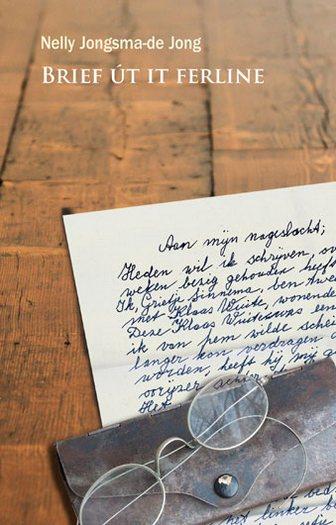 Nelly Jongsma-de Jong
BRIEF ÚT IT FERLINE
Aan mijn nageslacht;
Heden wil ik schrijven, ov
weken bezig gehouden heeft
Ik, Grietje Sinnema, ben
met Klaas Wiersta, wonend
Deze Klaas was een
ik van hem wilde sche
langer kon verdragen
worden, heeft hij mij
oorijzer achter
Het
bed
het linker